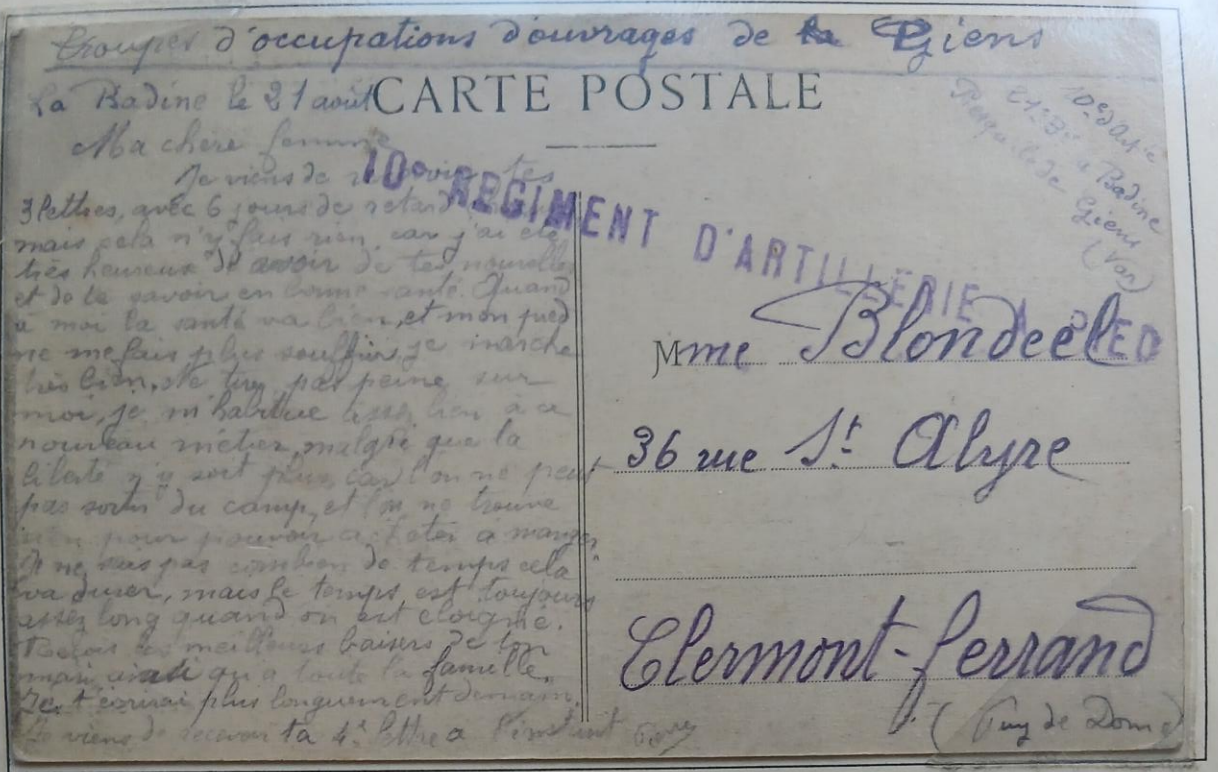 Troupes d'occupations d'ouvrages de la Giens
CARTE POSTALE
La Badine le 21 août
Ma chère femme
Je viens de recevoir tes
3 lettres, avec 6 jours de retard
mais cela n'y fais rien, car j'ai été
très heureux de avoir de tes nouvelles
et de te savoir en bonne santé. Quand
à moi la santé va bien, et mon pied
ne me fais plus souffrir, je marche
très bien. Ne pas peine sur
moi, je m'habitue assez bien à ce
nouveau métier, malgré que la
liberté n'y soit plus, car l'on ne peut
pas sortir du camp, et l'on ne trouve
rien pour pouvoir acheter à manger
Je ne sais pas combien de temps cela
va durer, mais le temps est toujours
assez long quand on est éloigné.
Reçois les meilleurs baisers de ton
mari qu'a toute la famille.
Je t'écrirai plus longuement demain.
Je viens de recevoir ta 4e lettre a l'instant
10e REGIMENT D'ARTILLERIE A PIED
10e d'Artie
à Badine
Presqu'île de Giens
(Var)
Mme Blondeel
36 rue St Alyre
Clermont-ferrand
(Puy de Dome)